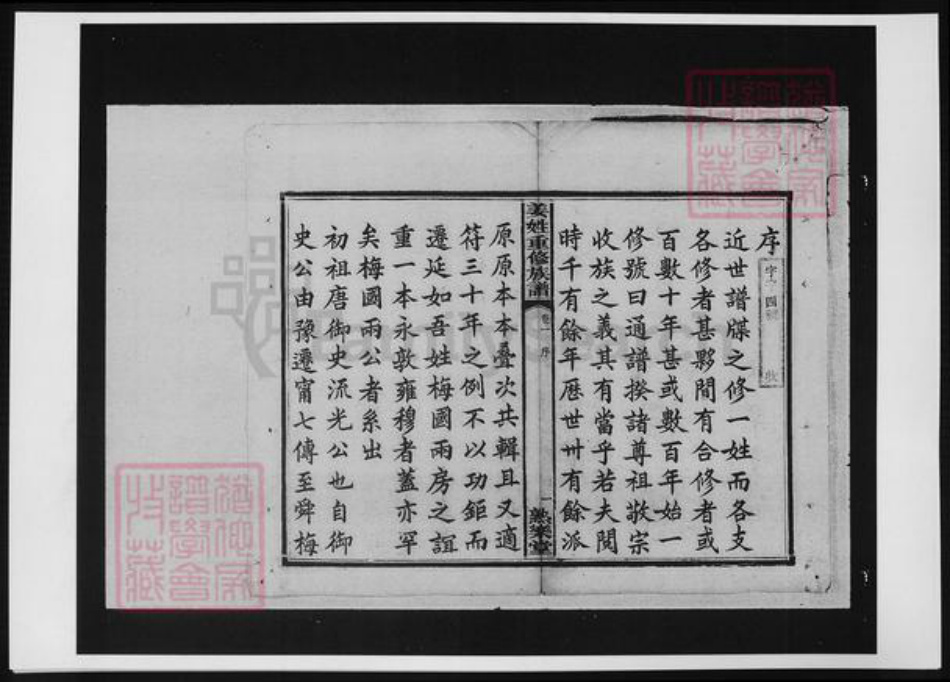 序
字 四 收
近世譜牒之修一姓而各支
各修者甚夥間有合修者或
百數十年甚或數百年始一
修號曰通譜揆諸尊祖敬宗
收族之義其有當乎若夫閱
時千有餘年歷世卅有餘派
姜姓重修族譜
卷一 序
一
樂堂
原原本本疊次共輯且又適
符三十年之例不以功鉅而
遷延如吾姓梅國兩房之誼
重一本永敦雍穆者蓋亦罕
矣梅國兩公者系出
初祖唐御史流光公也自御
史公由豫遷甯七傳至舜梅
FamilySearch